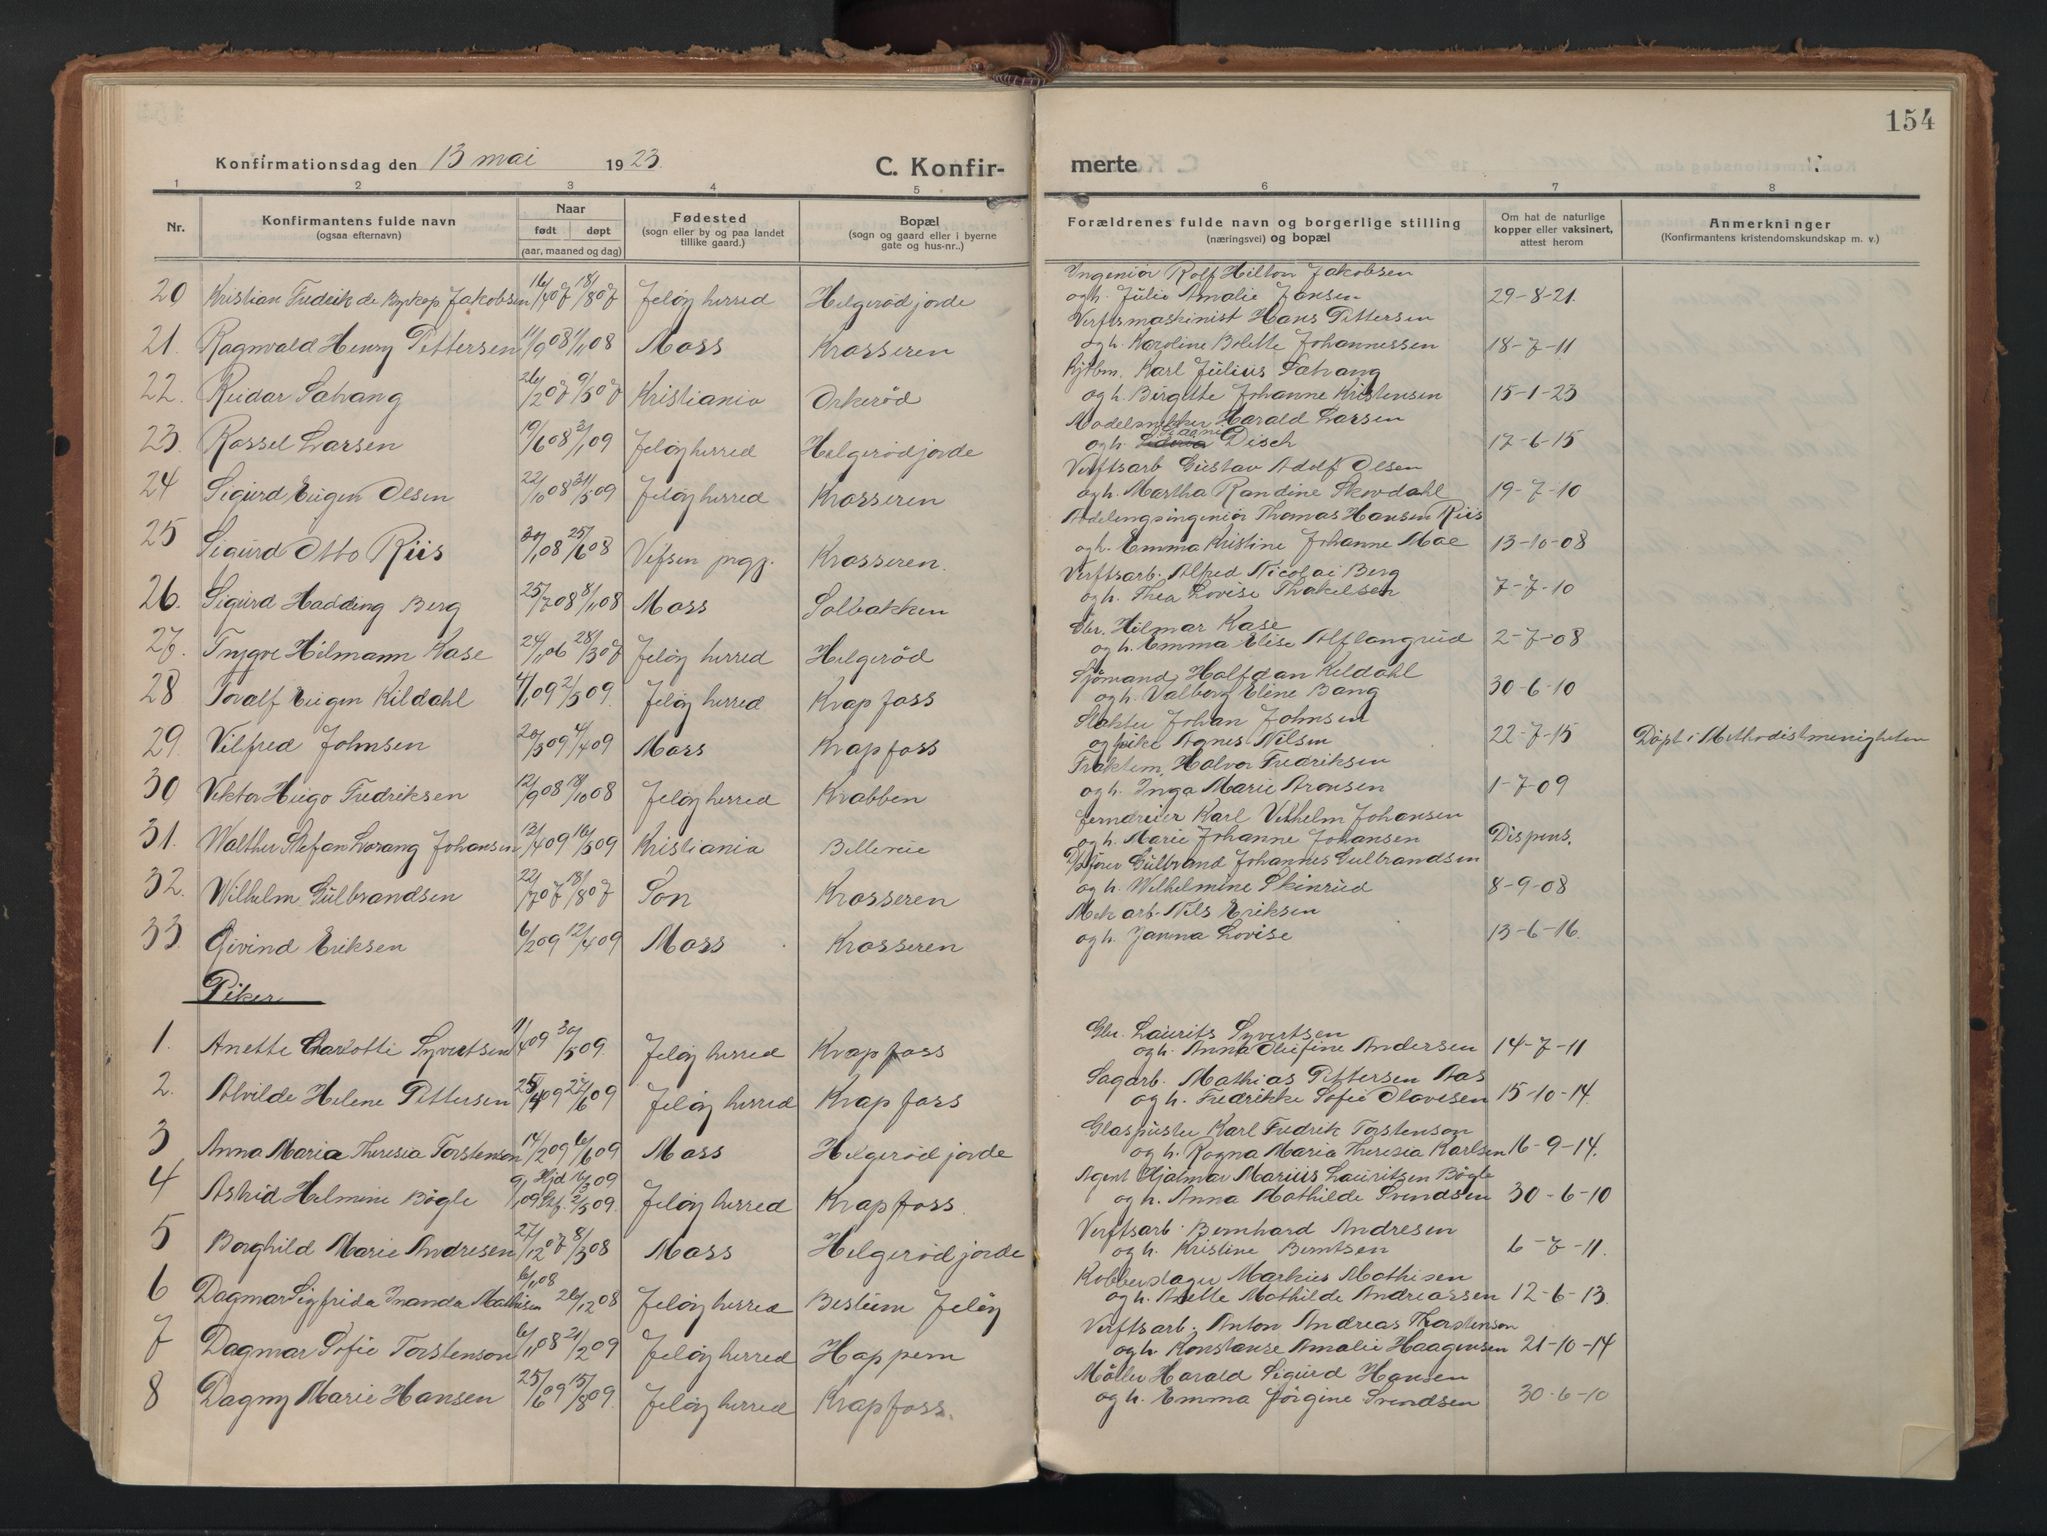 154
Konfirmationsdag den 13 mai 1923. C. Konfirmerte
1 2 3 4 5 6 7 8
Nr. Konfirmantens fulde navn (ogsaa efternavn) Naar født døpt (aar, maaned og dag) Fødested (sogn eller by og paa landet tillike gaard.) Bopæl (sogn og gaard eller i byerne gate og hus-nr..) Forældrenes fulde navn og borgerlige stilling (næringsvei) og bopæl Om hat de naturlige kopper eller vaksinert, attest herom Anmerkninger (Konfirmantens kristendomskundskap m. v.)
Ingeniør Rolf Hilton Jakobsen
20 Kristian Fredrik de Jakobsen 16/4 07 18/8 07 Jeløy herred Helgerødjorde og h. Julie Amalie Jansen 29-8-21.
Verftsmaskinist Hans Pettersen
21. Ragnvald Henry Pettersen 11/9 08 1/11 08 Moss Krosseren og h. Karoline Bolette Johannessen 18-7-11
Karl Julius Satvang
22. Reidar Satvang 26/2 07 9/5 07 Kristiania Orkerød og h. Birgitte Johanne Kristensen 15-1-23
Modelsnekker Harald Larsen
23. Rossel Larsen 19/6 08 3/1 09 Jeløy herred Helgerødjorde og h. Disch 17-6-15
Verftsarb. Gustav Adolf Olsen
24 Sigurd Eugen Olsen 22/10 08 31/5 09 Jeløy herred Krosseren og h. Martha Randine Skovdahl 19-7-10
Avdelingsingeniør Thomas Hansen Riis
25 Sigurd Otto Riis 30/1 08 25/6 08 Vefsen prgj. Krosseren. og h. Emma Kristine Johanne Moe 13-10-08
Verftsarb. Alfred Nicolai Berg
26. Sigurd Hadding Berg 25/7 08 8/11 08 Moss Solbakken og h. Thea Lovise Thokelsen 7-7-10
Gbr. Hilmar Kase
27. Trygve Hilmann Kase 24/11 06 28/3 07 Jeløy herred Helgerød og h. Emma Elise Alflangrud 2-7-08
Sjømand Halfdan Kildahl
28 Toralf Eugen Kildahl 4/1 09 2/5 09. Jeløy herred Krapfoss og h. Valborg Eline Bang 30-6-10
Slakter Johan Johnsen
29. Vilfred Johnsen 20/3 09 4/4 09 Moss Krapfoss og pike Agnes Nilsen 22-7-15 Døpt i Methodistmenigheten
Halvor Fredriksen
30 Viktor Hugo Fredriksen 12/9 08 18/10 08 Jeløy herred Krabben og h. Inga Marie Aronsen 1-7-09
Jerndreier Karl Vilhelm Johansen
31. Walther Stefan Lorang Johansen 13/4 09 16/5 09 Kristiania Bellevie og h. Marie Johanne Johansen Dispens.
Gulbrand Johannes Gulbrandsen
32. Wilhelm Gulbrandsen 22/7 07 18/8 07 Son Krosseren og h. Wilhelmine Skinrud 8-9-08
Mek arb. Nils Eriksen
33. Øivind Eriksen 6/2 09 12/4 09 Moss Krosseren og h. Janna Lovise 13-6-16.
Piker
Gbr. Laurits Syvertsen
1. Anette Charlotte Syvertsen 9/4 09 30/5 09. Jeløy herred Krapfoss og h. Anna Olefine Andersen 14-7-11
Sagarb. Mathias Pettersen Aas
2. Alvilde Helene Pettersen 25/4 09 27/6 09 Jeløy herred Krapfoss og h. Fredrikke Sofie Olavesen 15-10-14.
Glaspuster Karl Fredrik Torstenson
3 Anna Maria Theresia Torstenson 14/2 09 6/6 09 Moss Helgerødjorde og h. Rogna Maria Theresia Karlsen 16-9-14.
Agent Hjalmar Marius Lauritsen Bøgle
4 Astrid Helmine Bøgle 9/1 09 Hjd 16/3 09 2/5 09. Jeløy herred Krapfoss. og h. Anna Mathilde Svendsen 30-6-10
Verftsarb. Bernhard Andresen
5 Borghild Marie Andresen 27/12 07 8/3 08 Moss Helgerødjorde og h. Kristine Berntsen 6-7-11.
Kobberslager Markus Mathisen
6 Dagmar Sigfrida Inanda Mathisen 6/11 08 26/12 08 Jeløy herred Bestum Jeløy og h. Anette Mathilde Andreassen 12-6-13.
Verftsarb. Anton Andreas Thorstenson
7 Dagmar Sofie Torstenson 6/11 08 21/2 09 Jeløy herred Happern og h. Konstanse Amalie Haagensen 21-10-14
Møller Harald Sigurd Hansen
8 Dagny Marie Hansen 25/6 09 15/8 09. Jeløy herred Krapfoss. og h. Emma Jørgine Svendsen 30-6-10